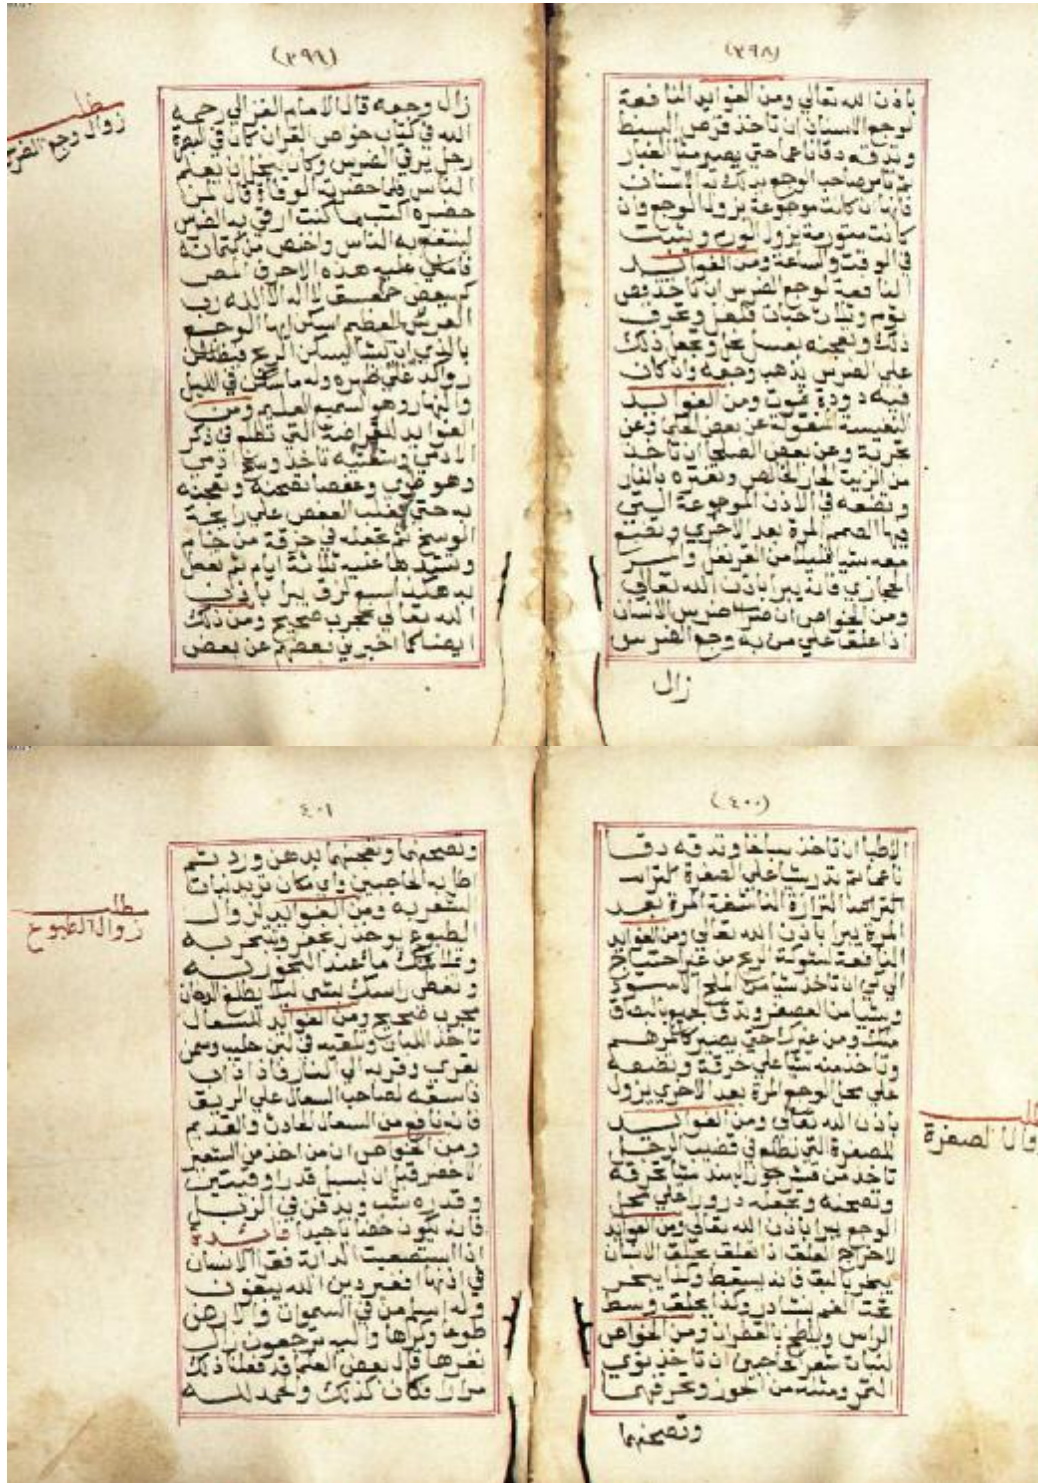 (٣٩٨)
باذن الله تعالي ومن الفوايد النافعة
لوجع الاسنان ان تاخذ قرص
وتدقه دقا ناعما حتي يصير مثل الغبار
ثم يامر صاحب الوجع به الاسنان
فانها ان كانت موجوعة يزول الوجع وان
كانت متورمة يزول الورم ويثبت
في الوقت والساعة ومن الفوايد
النافعة لوجع الضرس ان تاخذ فص
ثوم وثلاث حبات فلفل وتحرق
ذلك وتعجنه بعسل نحل وتجعل ذلك
علي الضرس يذهب وجعه وان كان
فيه دودة تموت ومن الفوايد
النفيسة المنقولة عن بعض الحكما وعن
تجربة وعن بعض الصلحا ان تاخذ
من الزيت الحار الخالص وتفتره بالنار
وتضعه في الاذن الموجوعة التي
فيها الصمم المرة بعد الاخري وتضع
معه شيا قليلا من القرنفل
الحجازي فانه يبرا باذن الله تعالي
ومن الخواص ان ضرس الانسان
اذا علق علي من به وجع الضرس
زال
(٣٩٩)
زال وجعه قال الامام الغزالي رحمه
الله في كتاب خواص القران كان في البصرة
رجل يرقي الضرس وكان يبخل ان يعلم
الناس فلما حضرته الوفاة قال لمن
حضره اكتب ما كنت ارقي به الضرس
لينتفع به الناس واخلص من كتمانه
فاملي عليه هذه الاحرف المص
كهيعص حمعسق لا اله الا الله رب
العرش العظيم اسكن ايها الوجع
بالذي ان يشا يسكن الريح فيظللن
رواكد علي ظهره وله ما سكن في الليل
والنهار وهو السميع العليم ومن
الفوايد التي تطلع في ذكر
الادمي تاخذ وسخ ادمي
وهو طري وعفصا تصحنه وتعجنه
به حتي يغلب العفص علي رايحة
الوسخ ثم تجعله في خرقة من خام
وتشدها عليه ثلاثة ايام ثم
يبرا باذن
الله تعالي مجرب صحيح ومن ذلك
ايضا كما اخبرني بعضهم عن بعض
مطلب
زوال وجع الضرس
(٤٠٠)
الاطبا ان تاخذ وتدقه دقا
ناعما ثم تذر شيا علي الصفرة
المرة بعد
المرة يبرا باذن الله تعالي ومن الفوايد
النافعة لشوكة الريح من غير احتياج
الي كي ان تاخذ شيا من الملح الاسود
وشيا من العصفر وتدق الجميع بالبصاق
منك ومن غيرك حتي يصير كالمرهم
وتاخذ منه شيا علي خرقة وتضعه
علي محل الوجع المرة بعد الاخري يزول
باذن الله تعالي ومن الفوايد
للصفرة التي تطلع في قضيب الرجل
تاخذ من قشر جوز الهند شيا تحرقه
وتصحنه وتجعله درورا علي محل
الوجع يبرا باذن الله تعالي ومن الفوايد
لاخراج العلق اذا علق بحلق الانسان
يبخر بالبق فانه يسقط وكذا يبخر
تحت الفم بنشادر وكذا يحلق وسط
الراس ويلطخ بالقطران ومن الخواص
لنبات شعر الحاجبين ان تاخذ نوي
التمر ومثله من الجوز وتحرقهما
وتصحنهما
مطلب
زوال الصفرة
٤٠١
وتصحنهما وتعجنهما بدهن ورد ثم
اطل به الحاجبين واي مكان تريد نبات
الشعر به ومن الفوايد لزوال
الطبوع يوخذ زعفر ويتبخر به
عند البخور به
وتغطي راسك بشي ليلا يطلع الدخان
مجرب صحيح ومن الفوايد للسعال
تاخذ اللبان وتلقيه في لبن حليب وسمن
بقري وقربه الي النار فاذا ذاب
فاسقه لصاحب السعال علي الريق
فانه نافع من السعال الحادث والقديم
ومن الخواص ان من اخذ من الشعير
الاخضر قبل ان يسبل قدر اوقيتين
وقدره شب ويدفن في الزبل
فانه يكون خضابا جيدا فائدة
اذا استصعبت الدابة فقرا الانسان
في اذنها افغير دين الله يبغون
وله اسلم من في السموات والارض
طوعا وكرها واليه ترجعون زال
نفرها قال بعض العلما قد فعلنا ذلك
مرارا فكان كذلك والحمد لله
مطلب
زوال الطبوع